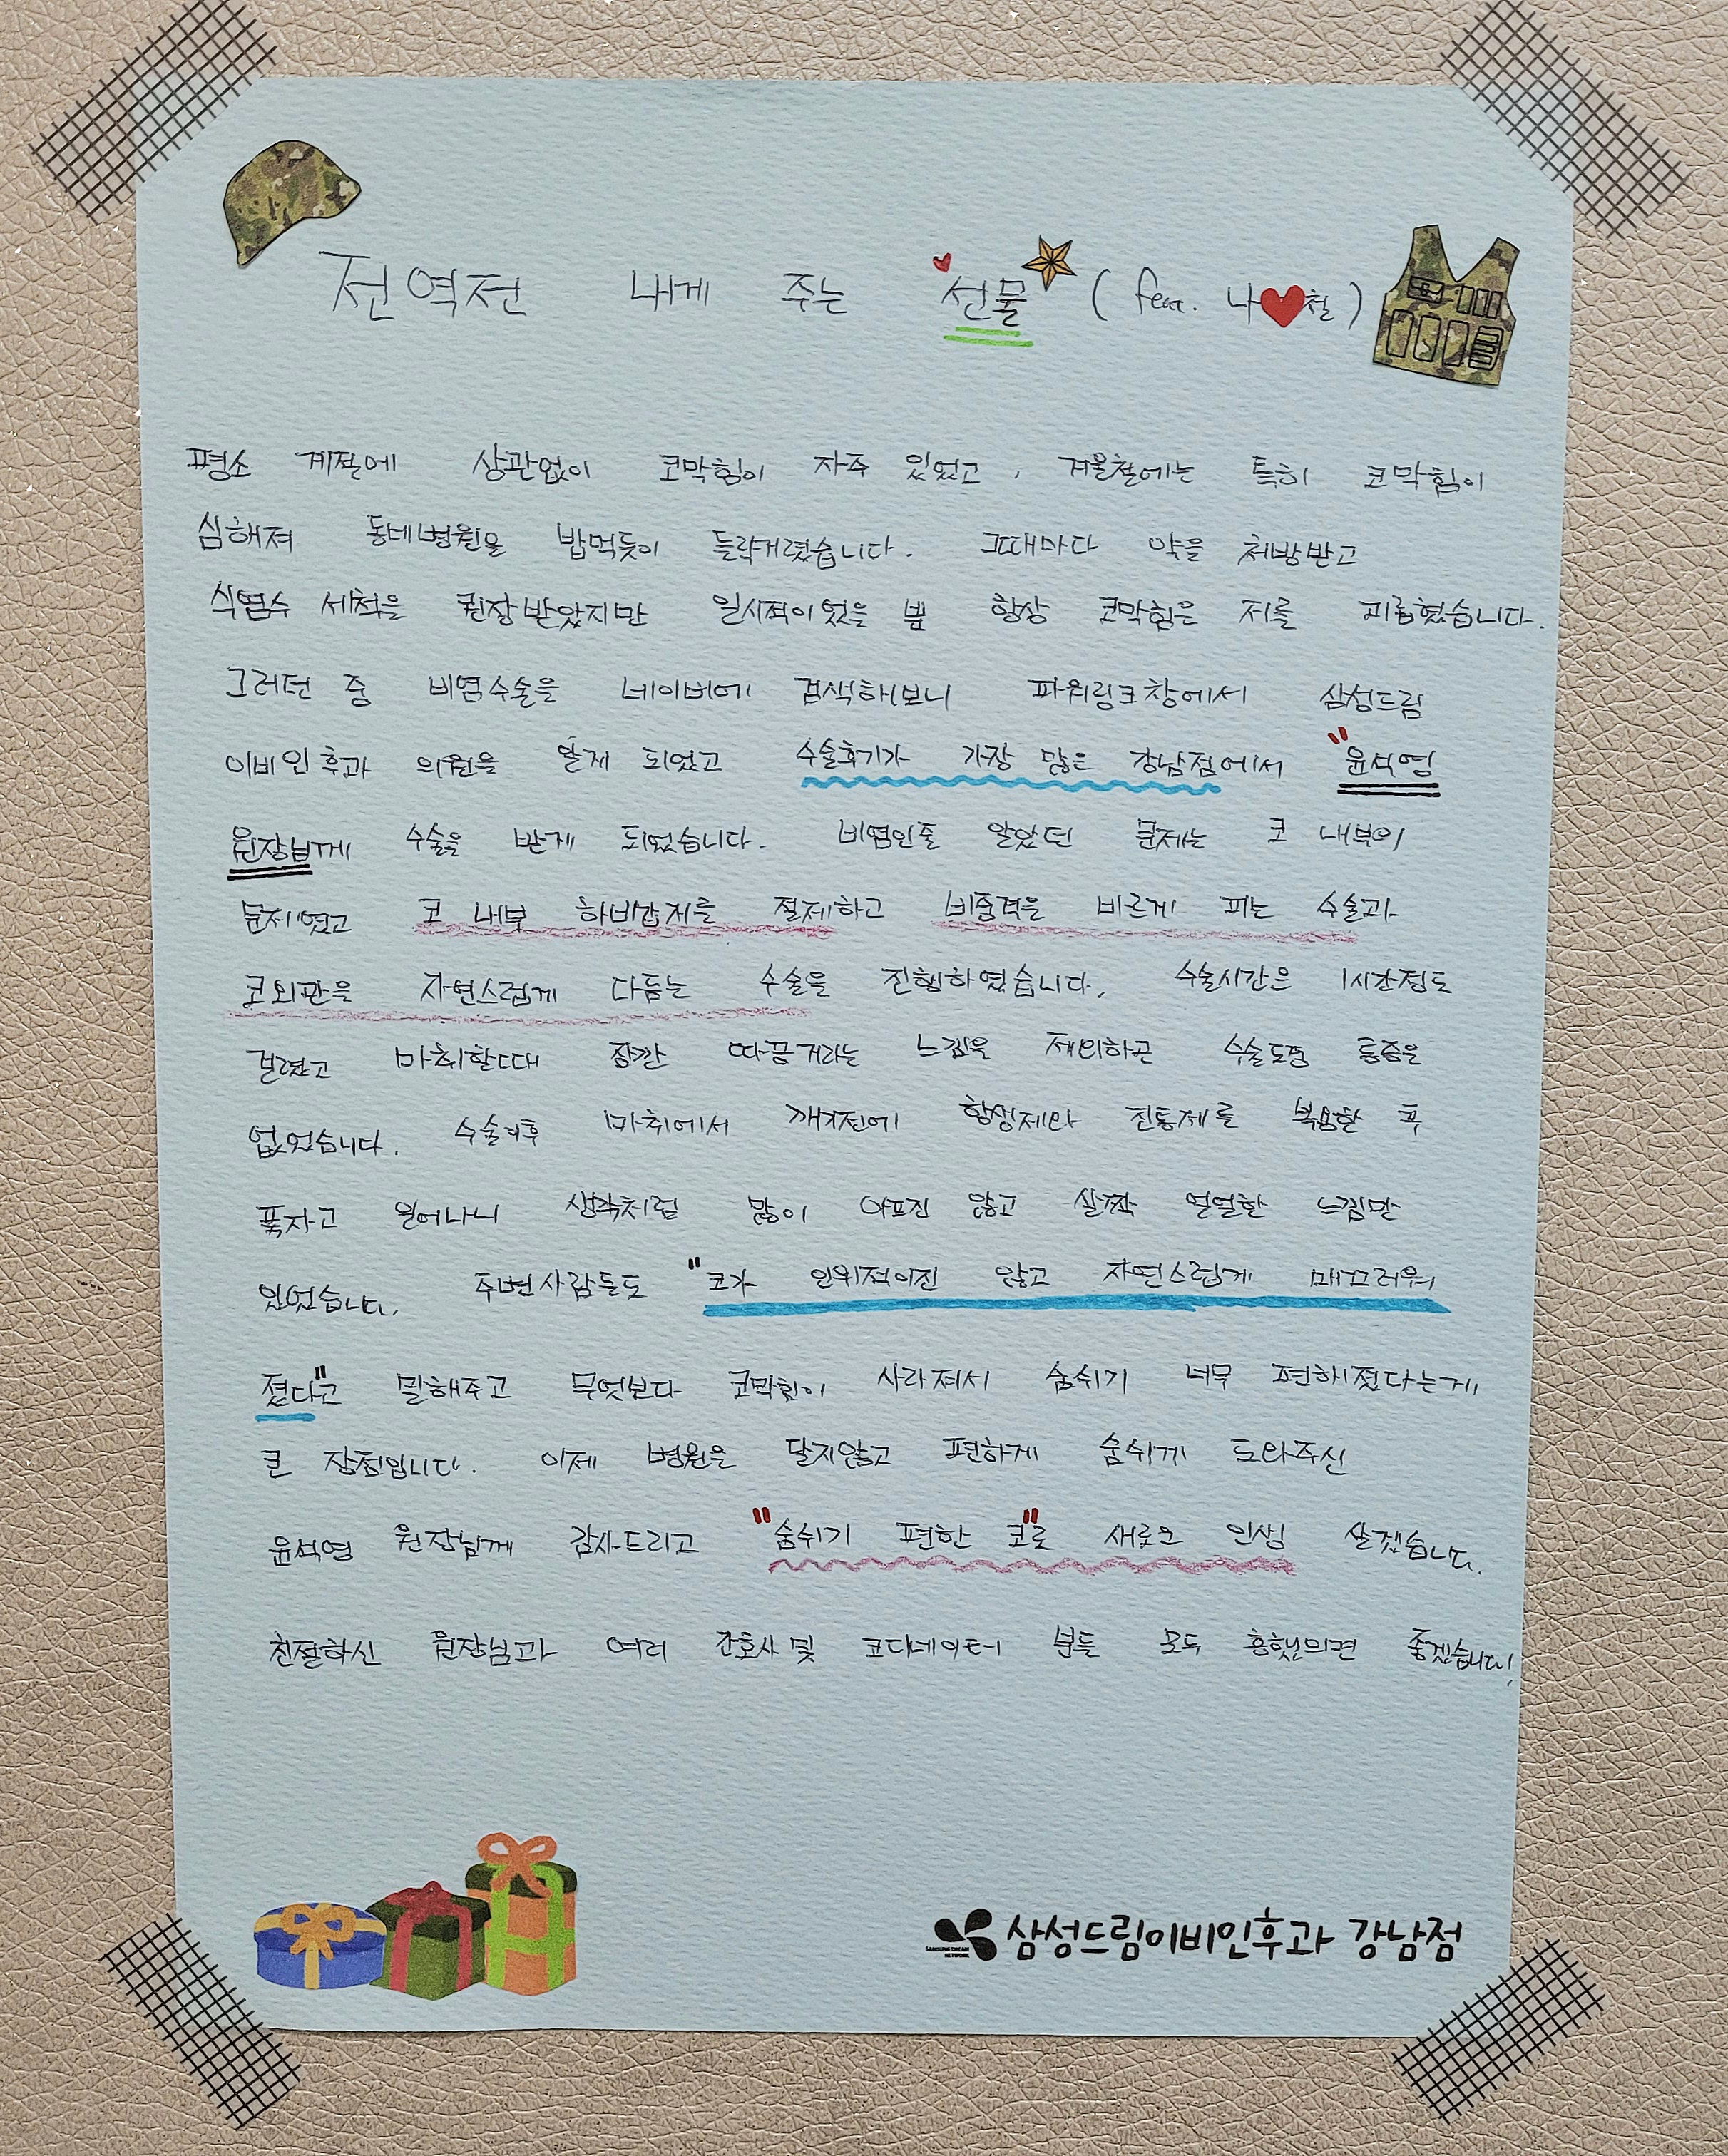 전역전 내게 주는 선물 (feat. 나♥철)
평소 계절에 상관없이 코막힘이 자주 있었고, 겨울철에는 특히 코막힘이
심해져 동네병원을 밥먹듯이 들락거렸습니다. 그때마다 약을 처방받고
식염수 세척을 권장받았지만 일시적이었을 뿐 항상 코막힘은 저를 괴롭혔습니다.
그러던 중 비염수술을 네이버에 검색해보니 파워링크창에서 삼성드림
이비인후과 의원을 알게 되었고 수술후기가 가장 많은 강남점에서 "윤석영
원장님께 수술을 받게 되었습니다. 비염인줄 알았던 문제는 코 내부의
문제였고 코 내부 하비갑개를 절제하고 비중격을 바르게 피는 수술과
코외관을 자연스럽게 다듬는 수술을 진행하였습니다. 수술시간은 1시간정도
걸렸고 마취할때 잠깐 따끔거리는 느낌을 제외하곤 수술도중 통증은
없었습니다. 수술이후 마취에서 깨기전에 항생제와 진통제를 복용한 후
푹자고 일어나니 생각처럼 많이 아프진 않고 살짝 얼얼한 느낌만
있었습니다. 주변사람들도 "코가 인위적이진 않고 자연스럽게 매끄러워
졌다"고 말해주고 무엇보다 코막힘이 사라져서 숨쉬기 너무 편해졌다는게
큰 장점입니다. 이제 병원은 달지않고 편하게 숨쉬게 도와주신
윤석영 원장님께 감사드리고 "숨쉬기 편한 코"로 새로운 인생 살겠습니다.
친절하신 원장님과 여러 간호사 및 코디네이터 분들 모두 흥했으면 좋겠습니다!
SAMSUNG DREAM
NETWORK
삼성드림이비인후과 강남점